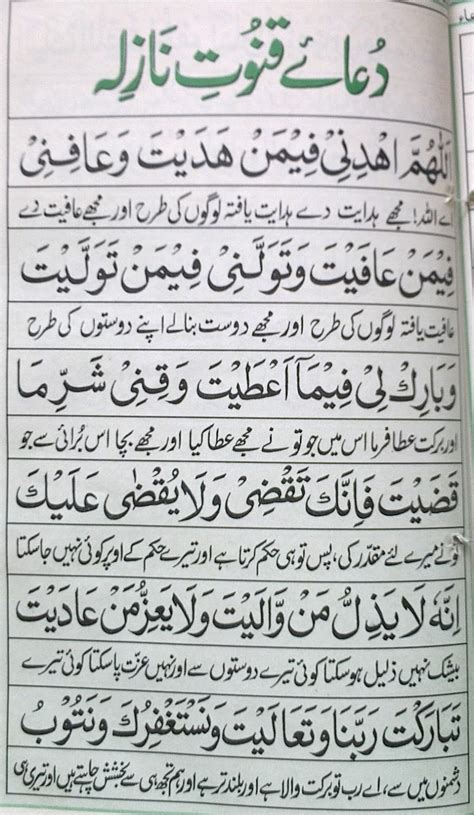 دُعائے قنوتِ نازلہ
اَللّٰهُمَّ اهْدِنِيْ فِيْمَنْ هَدَيْتَ وَعَافِنِيْ
اے اللہ! مجھے ہدایت دے ہدایت یافتہ لوگوں کی طرح اور مجھے عافیت دے
فِيْمَنْ عَافَيْتَ وَتَوَلَّنِيْ فِيْمَنْ تَوَلَّيْتَ
عافیت یافتہ لوگوں کی طرح اور مجھے دوست بنالے اپنے دوستوں کی طرح
وَبَارِكْ لِيْ فِيْمَآ اَعْطَيْتَ وَقِنِيْ شَرَّ مَا
اور برکت عطا فرما اس میں جو تو نے مجھے عطا کیا اور مجھے بچا اس بُرائی سے جو
قَضَيْتَ فَاِنَّكَ تَقْضِيْ وَلَا يُقْضٰى عَلَيْكَ
تو نے میرے لئے مقدّر کی، پس تو ہی حکم کرتا ہے اور تیرے حکم کے اوپر کوئی نہیں جاسکتا
اِنَّهٗ لَا يَذِلُّ مَنْ وَّالَيْتَ وَلَا يَعِزُّ مَنْ عَادَيْتَ
بیشک نہیں ذلیل ہوسکتا کوئی تیرے دوستوں سے اور نہیں عزّت پاسکتا کوئی تیرے
تَبَارَكْتَ رَبَّنَا وَتَعَالَيْتَ وَنَسْتَغْفِرُكَ وَنَتُوْبُ
دشمنوں میں سے، اے رب تو برکت والا ہے اور بلند تر ہے اور ہم تجھ ہی سے بخشش چاہتے ہیں اور تیری ہی